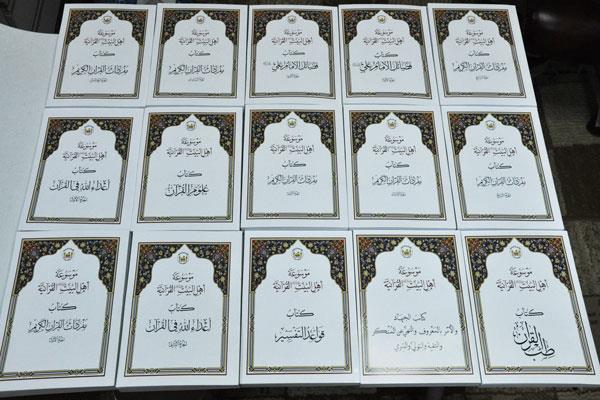 موسوعة
أهل البيت القرآنية
كتاب
مفردات القرآن الكريم
موسوعة
أهل البيت القرآنية
كتاب
مفردات القرآن الكريم
موسوعة
أهل البيت القرآنية
كتاب
فضائل الإمام علي
موسوعة
أهل البيت القرآنية
كتاب
فضائل الإمام علي
موسوعة
أهل البيت القرآنية
كتاب
مفردات القرآن الكريم
موسوعة
أهل البيت القرآنية
كتاب
أعداء الله في القرآن
موسوعة
أهل البيت القرآنية
كتاب
علوم القرآن
موسوعة
أهل البيت القرآنية
كتاب
مفردات القرآن الكريم
موسوعة
أهل البيت القرآنية
كتاب
مفردات القرآن الكريم
موسوعة
أهل البيت القرآنية
كتاب
مفردات القرآن الكريم
موسوعة
أهل البيت القرآنية
كتاب
مفردات القرآن الكريم
موسوعة
أهل البيت القرآنية
كتاب
أعداء الله في القرآن
موسوعة
أهل البيت القرآنية
كتاب
قواعد التفسير
موسوعة
أهل البيت القرآنية
كتاب الجهاد
والأمر بالمعروف والنهي عن المنكر
والتقية والتولي والتبري
موسوعة
أهل البيت القرآنية
كتاب
طب القرآن